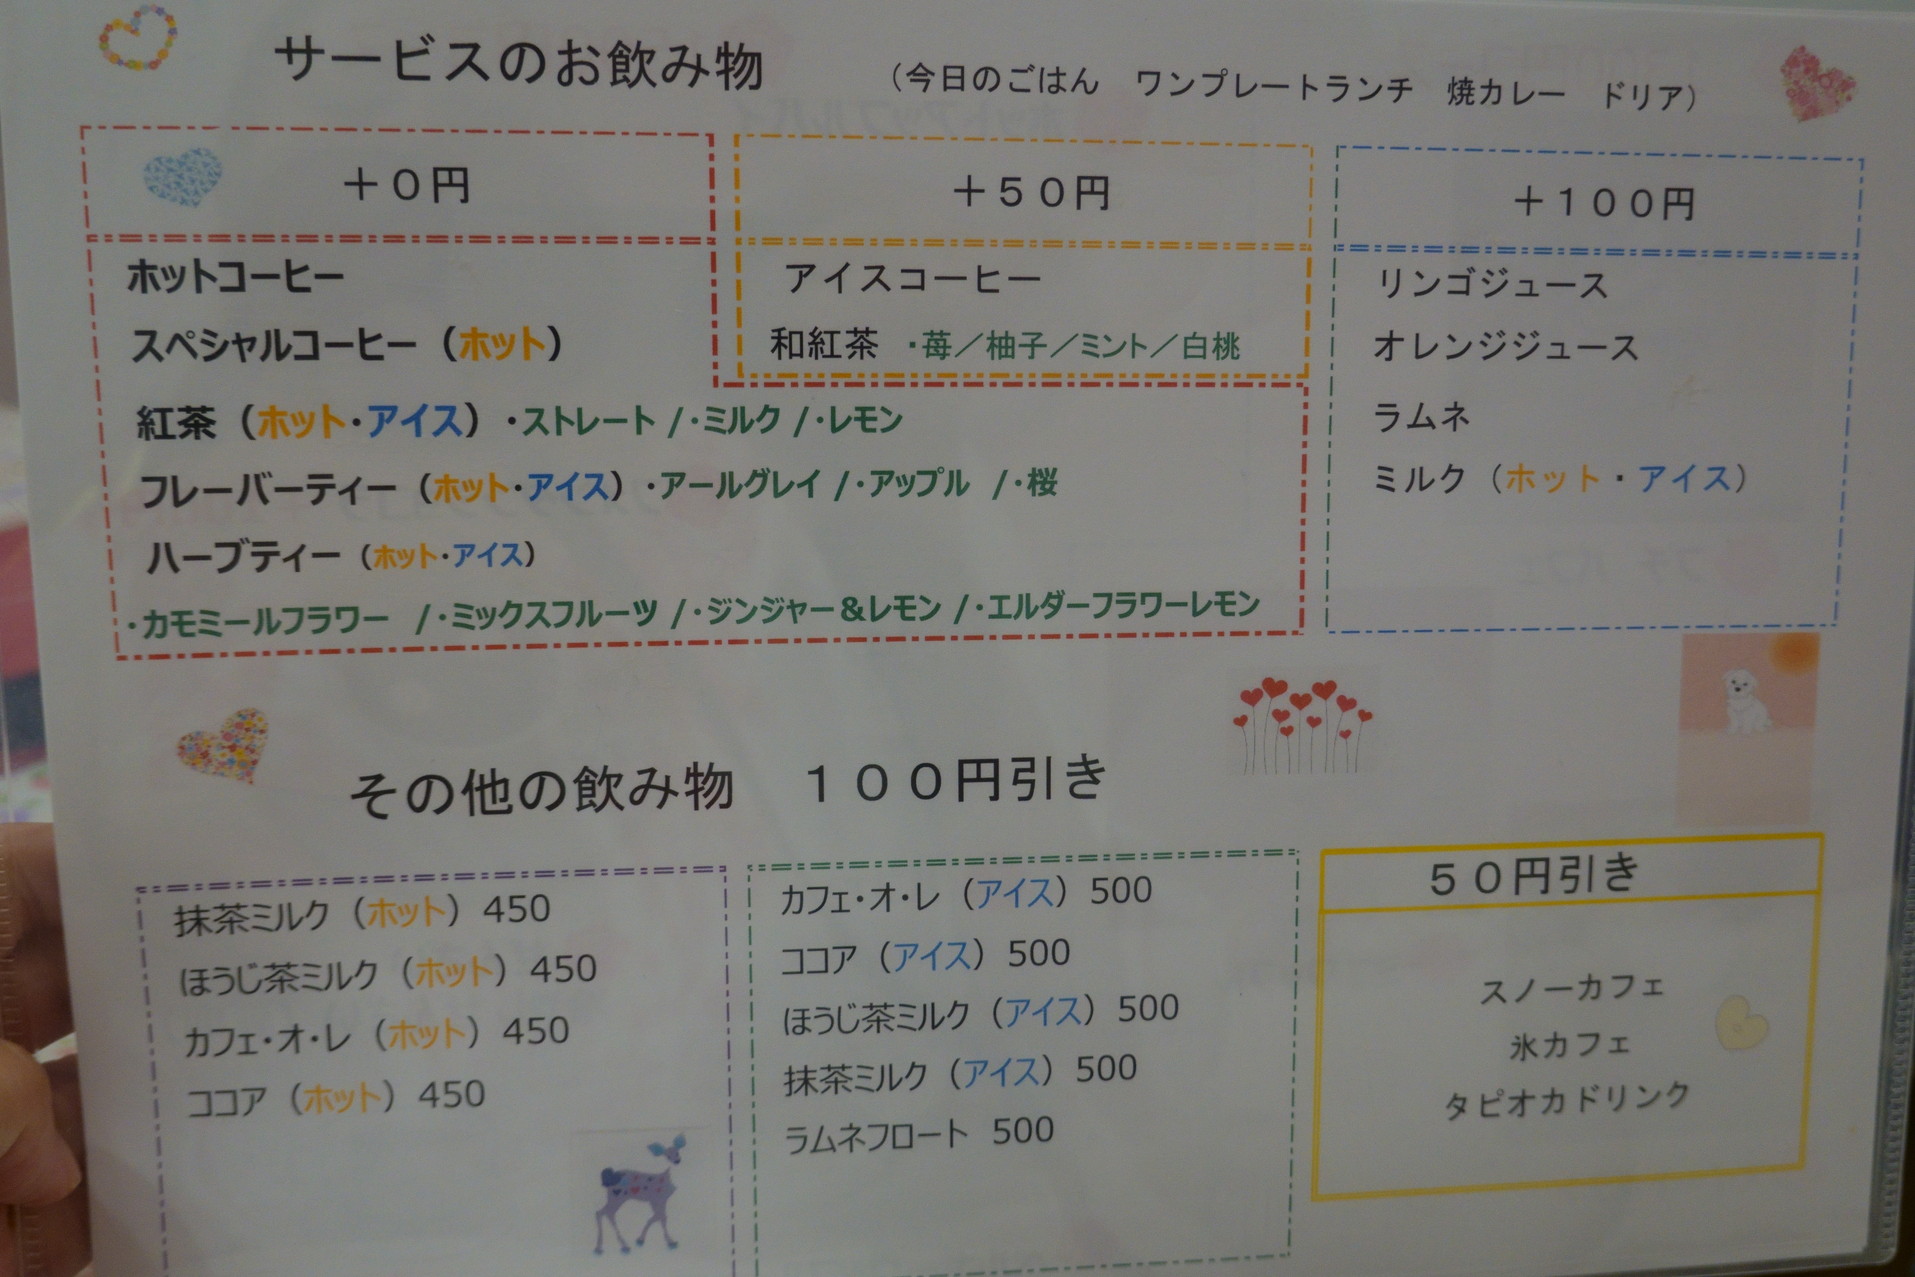 サービスのお飲み物 （今日のごはん ワンプレートランチ 焼カレー ドリア）
＋０円
ホットコーヒー
スペシャルコーヒー（ホット）
紅茶（ホット・アイス）・ストレート /・ミルク /・レモン
フレーバーティー（ホット・アイス）・アールグレイ /・アップル /・桜
ハーブティー（ホット・アイス）
・カモミールフラワー /・ミックスフルーツ /・ジンジャー＆レモン /・エルダーフラワーレモン
＋５０円
アイスコーヒー
和紅茶 ・苺／柚子／ミント／白桃
＋１００円
リンゴジュース
オレンジジュース
ラムネ
ミルク（ホット・アイス）
その他の飲み物 １００円引き
抹茶ミルク（ホット）450
ほうじ茶ミルク（ホット）450
カフェ・オ・レ（ホット）450
ココア（ホット）450
カフェ・オ・レ（アイス）500
ココア（アイス）500
ほうじ茶ミルク（アイス）500
抹茶ミルク（アイス）500
ラムネフロート 500
５０円引き
スノーカフェ
氷カフェ
タピオカドリンク